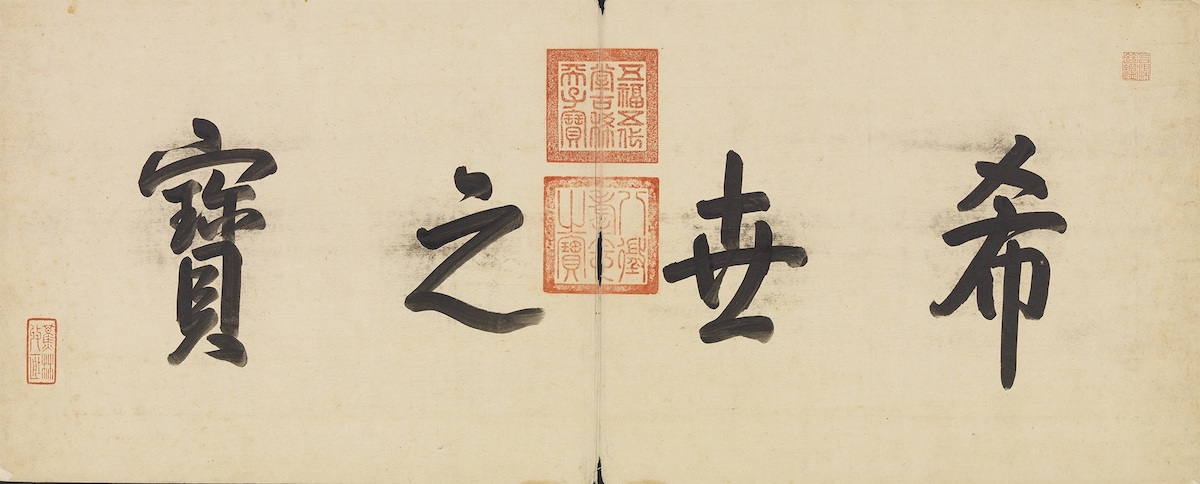 希世之寶
五福五代堂古稀天子寶
八徵耄念之寶
蕉林收藏